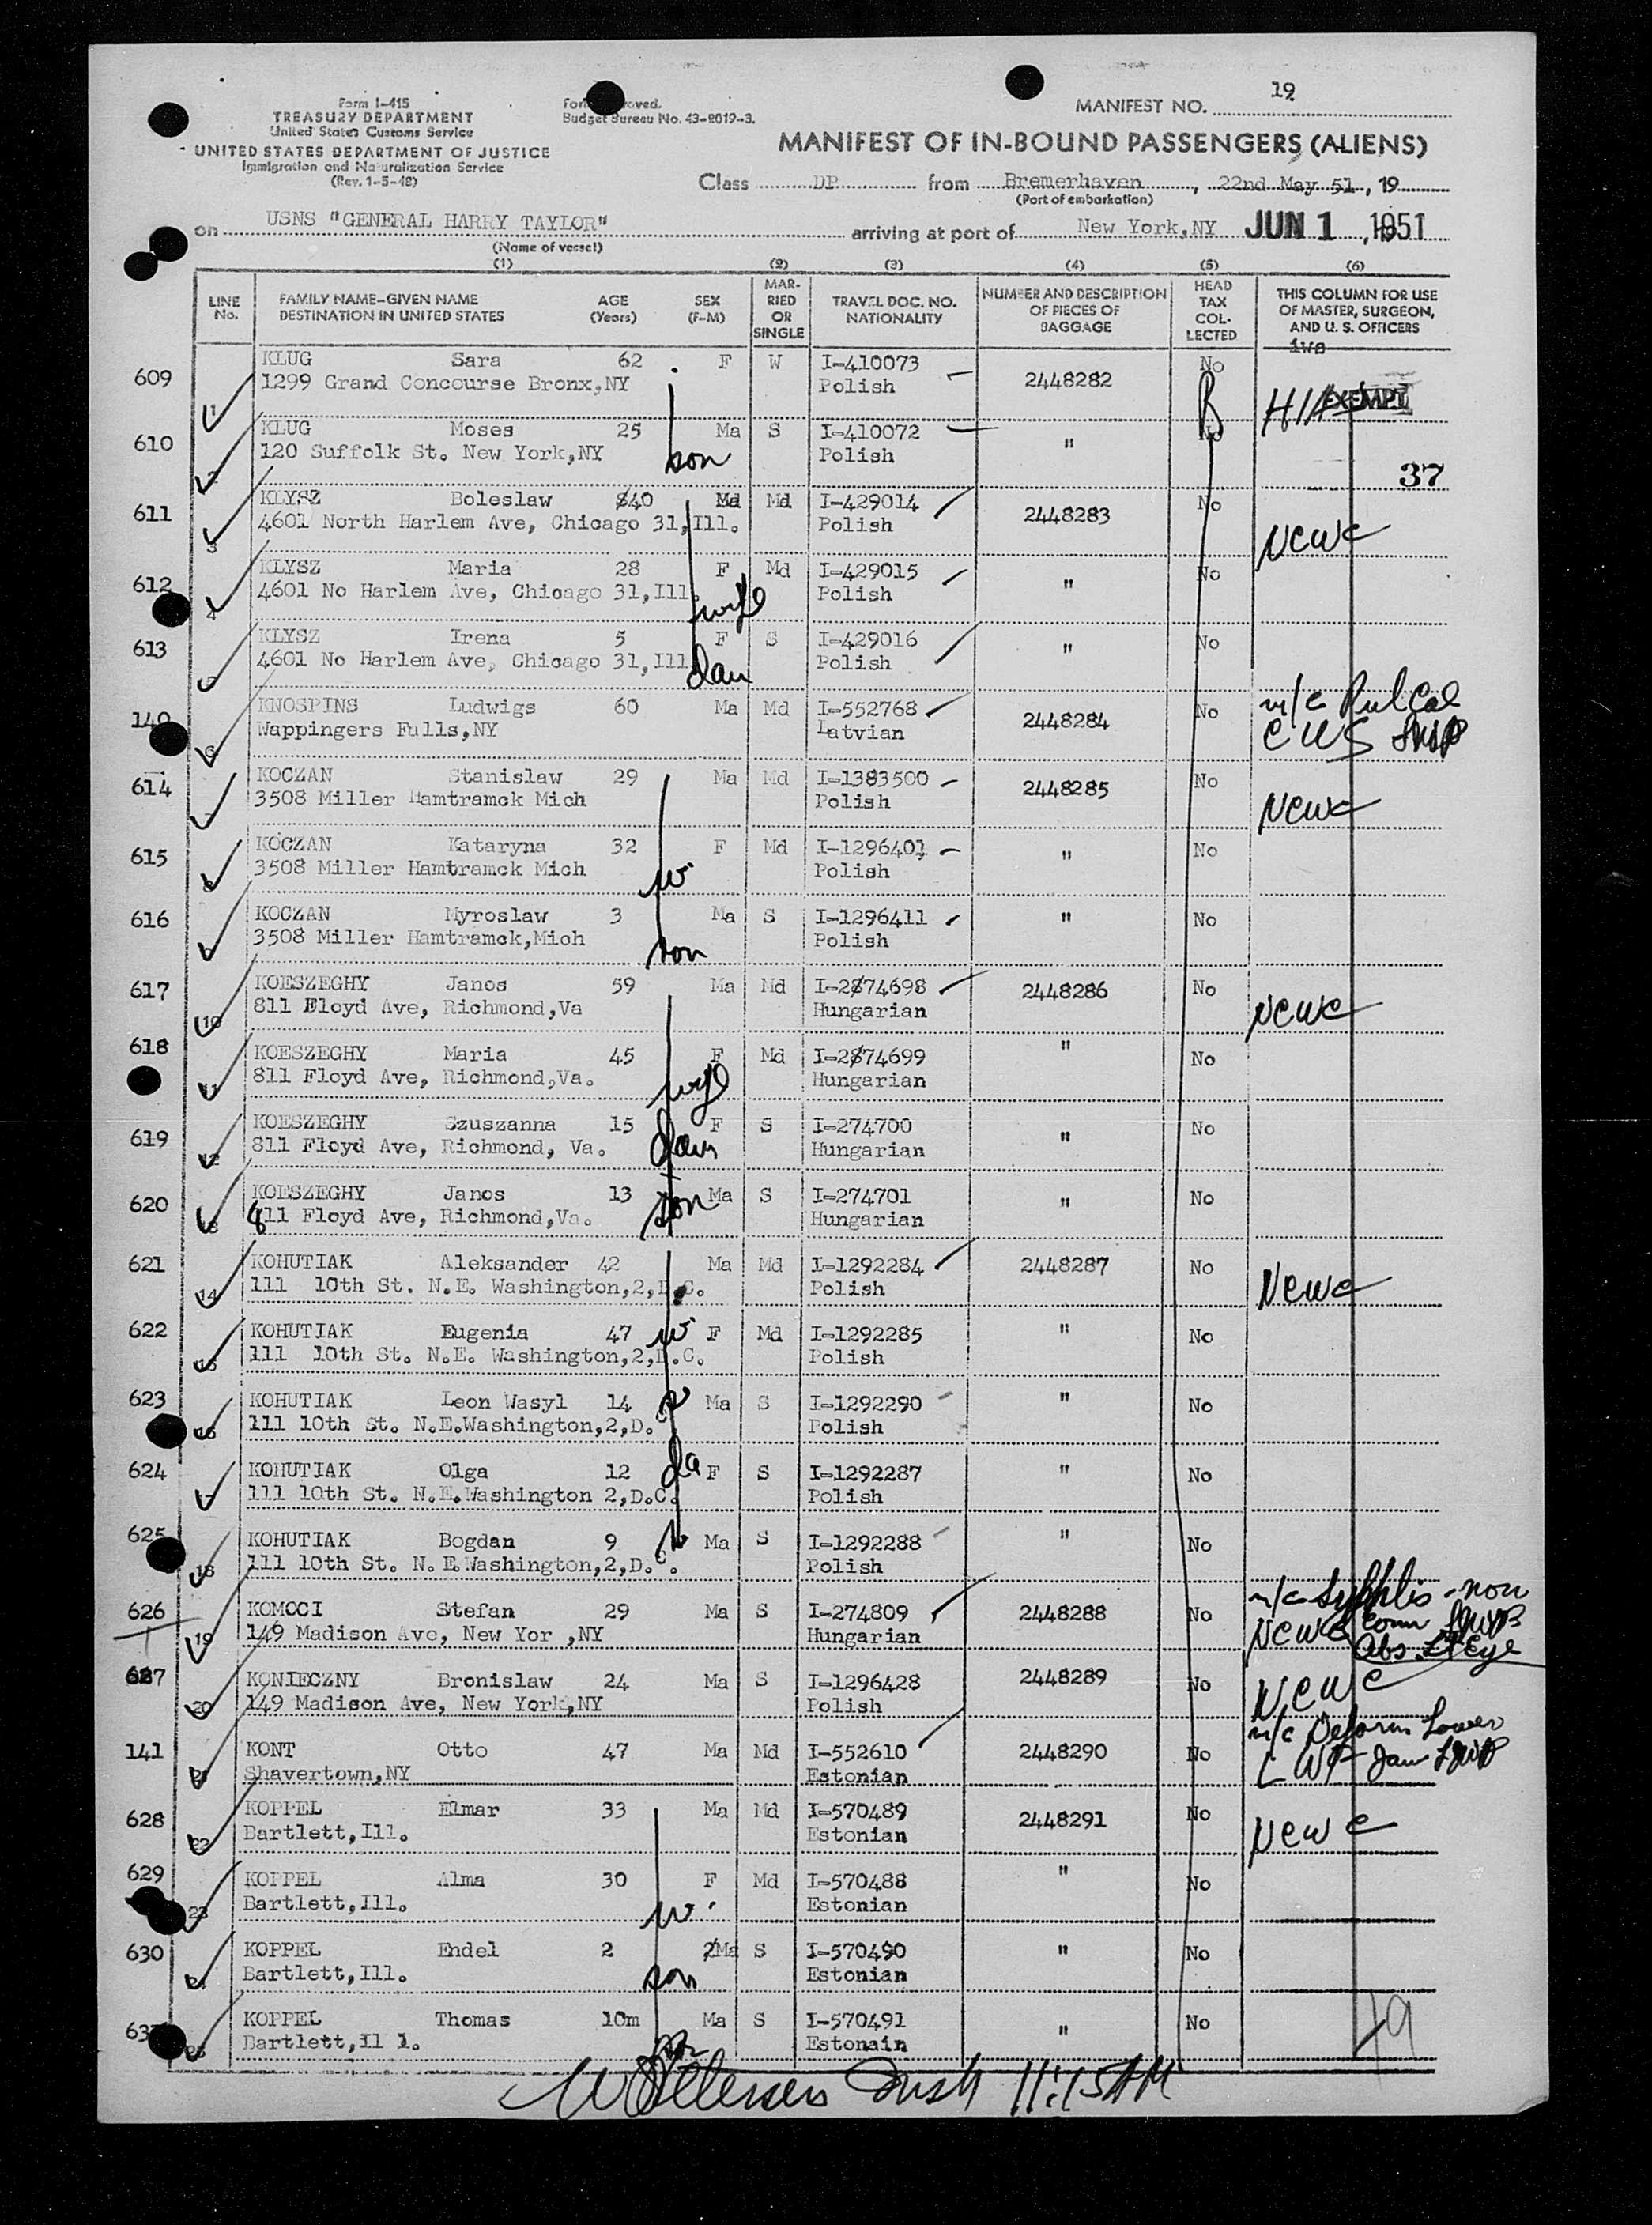 19
Form I-415
TREASURY DEPARTMENT
United States Customs Service
UNITED STATES DEPARTMENT OF JUSTICE
Immigration and Naturalization Service
(Rev. 1-5-48)
Budget Bureau No. 43-R019-3.
MANIFEST NO.
MANIFEST OF IN-BOUND PASSENGERS (ALIENS)
Class DP from Bremerhaven, 22nd May 51, 19
(Port of embarkation)
on USNS "GENERAL HARRY TAYLOR" arriving at port of New York,NY JUN 1, 1951
(Name of vessel)
(1) (2) (3) (4) (5) (6)
LINE No. FAMILY NAME-GIVEN NAME DESTINATION IN UNITED STATES AGE (Years) SEX (F-M) MARRIED OR SINGLE TRAVEL DOC. NO. NATIONALITY NUMBER AND DESCRIPTION OF PIECES OF BAGGAGE HEAD TAX COLLECTED THIS COLUMN FOR USE OF MASTER, SURGEON, AND U. S. OFFICERS
609 1 KLUG Sara 62 F W I-410073 2448282 No EXEMPT
1299 Grand Concourse Bronx,NY Polish
610 2 KLUG Moses 25 Ma S I-410072 " No
120 Suffolk St. New York,NY son Polish
37
611 3 KLYSZ Boleslaw 40 Md Md I-429014 2448283 No NCWC
4601 North Harlem Ave, Chicago 31,Ill. Polish
612 4 KLYSZ Maria 28 F Md I-429015 " No
4601 No Harlem Ave, Chicago 31,Ill. wife Polish
613 5 KLYSZ Irena 5 F S I-429016 " No
4601 No Harlem Ave, Chicago 31,Ill dau Polish
140 6 KNOSPINS Ludwigs 60 Ma Md I-552768 2448284 No m/c Pul Cal
Wappingers Falls,NY Latvian CWS
614 7 KOCZAN Stanislaw 29 Ma Md I-1383500 2448285 No NCWC
3508 Miller Hamtramck Mich Polish
615 8 KOCZAN Kataryna 32 F Md I-1296401 " No
3508 Miller Hamtramck Mich w Polish
616 9 KOCZAN Myroslaw 3 Ma S I-1296411 " No
3508 Miller Hamtramck,Mich son Polish
617 10 KOESZEGHY Janos 59 Ma Md I-2874698 2448286 No NCWC
811 Floyd Ave, Richmond,Va Hungarian
618 11 KOESZEGHY Maria 45 F Md I-2874699 " No
811 Floyd Ave, Richmond,Va. wife Hungarian
619 12 KOESZEGHY Szuszanna 15 F S I-274700 " No
811 Floyd Ave, Richmond, Va. dau Hungarian
620 13 KOESZEGHY Janos 13 Ma S I-274701 " No
811 Floyd Ave, Richmond,Va. son Hungarian
621 14 KOHUTIAK Aleksander 42 Ma Md I-1292284 2448287 No NCWC
111 10th St. N.E. Washington,2,D.C. Polish
622 15 KOHUTIAK Eugenia 47 w F Md I-1292285 " No
111 10th St. N.E. Washington,2,D.C. Polish
623 16 KOHUTIAK Leon Wasyl 14 s Ma S I-1292290 " No
111 10th St. N.E.Washington,2,D.C Polish
624 17 KOHUTIAK Olga 12 da F S I-1292287 " No
111 10th St. N.E.Washington 2,D.C. Polish
625 18 KOHUTIAK Bogdan 9 s Ma S I-1292288 " No
111 10th St. N.E.Washington,2,D.C. Polish
626 19 KOMOCI Stefan 29 Ma S I-274809 2448288 No m/c Syphlis - non
149 Madison Ave, New Yor ,NY Hungarian NCWC Comm
Abs. Lt Eye
627 20 KONIECZNY Bronislaw 24 Ma S I-1296428 2448289 No NCWC
149 Madison Ave, New York,NY Polish
141 21 KONT Otto 47 Ma Md I-552610 2448290 No m/c Deform Lower
Shavertown,NY Estonian LWF Jaw
628 22 KOPPEL Elmar 33 Ma Md I-570489 2448291 No NCWC
Bartlett,Ill. Estonian
629 23 KOPPEL Alma 30 F Md I-570488 " No
Bartlett,Ill. w Estonian
630 24 KOPPEL Endel 2 Ma S I-570490 " No
Bartlett,Ill. son Estonian
631 25 KOPPEL Thomas 10m Ma S I-570491 " No
Bartlett,Il l. Estonain
49
11:15 AM